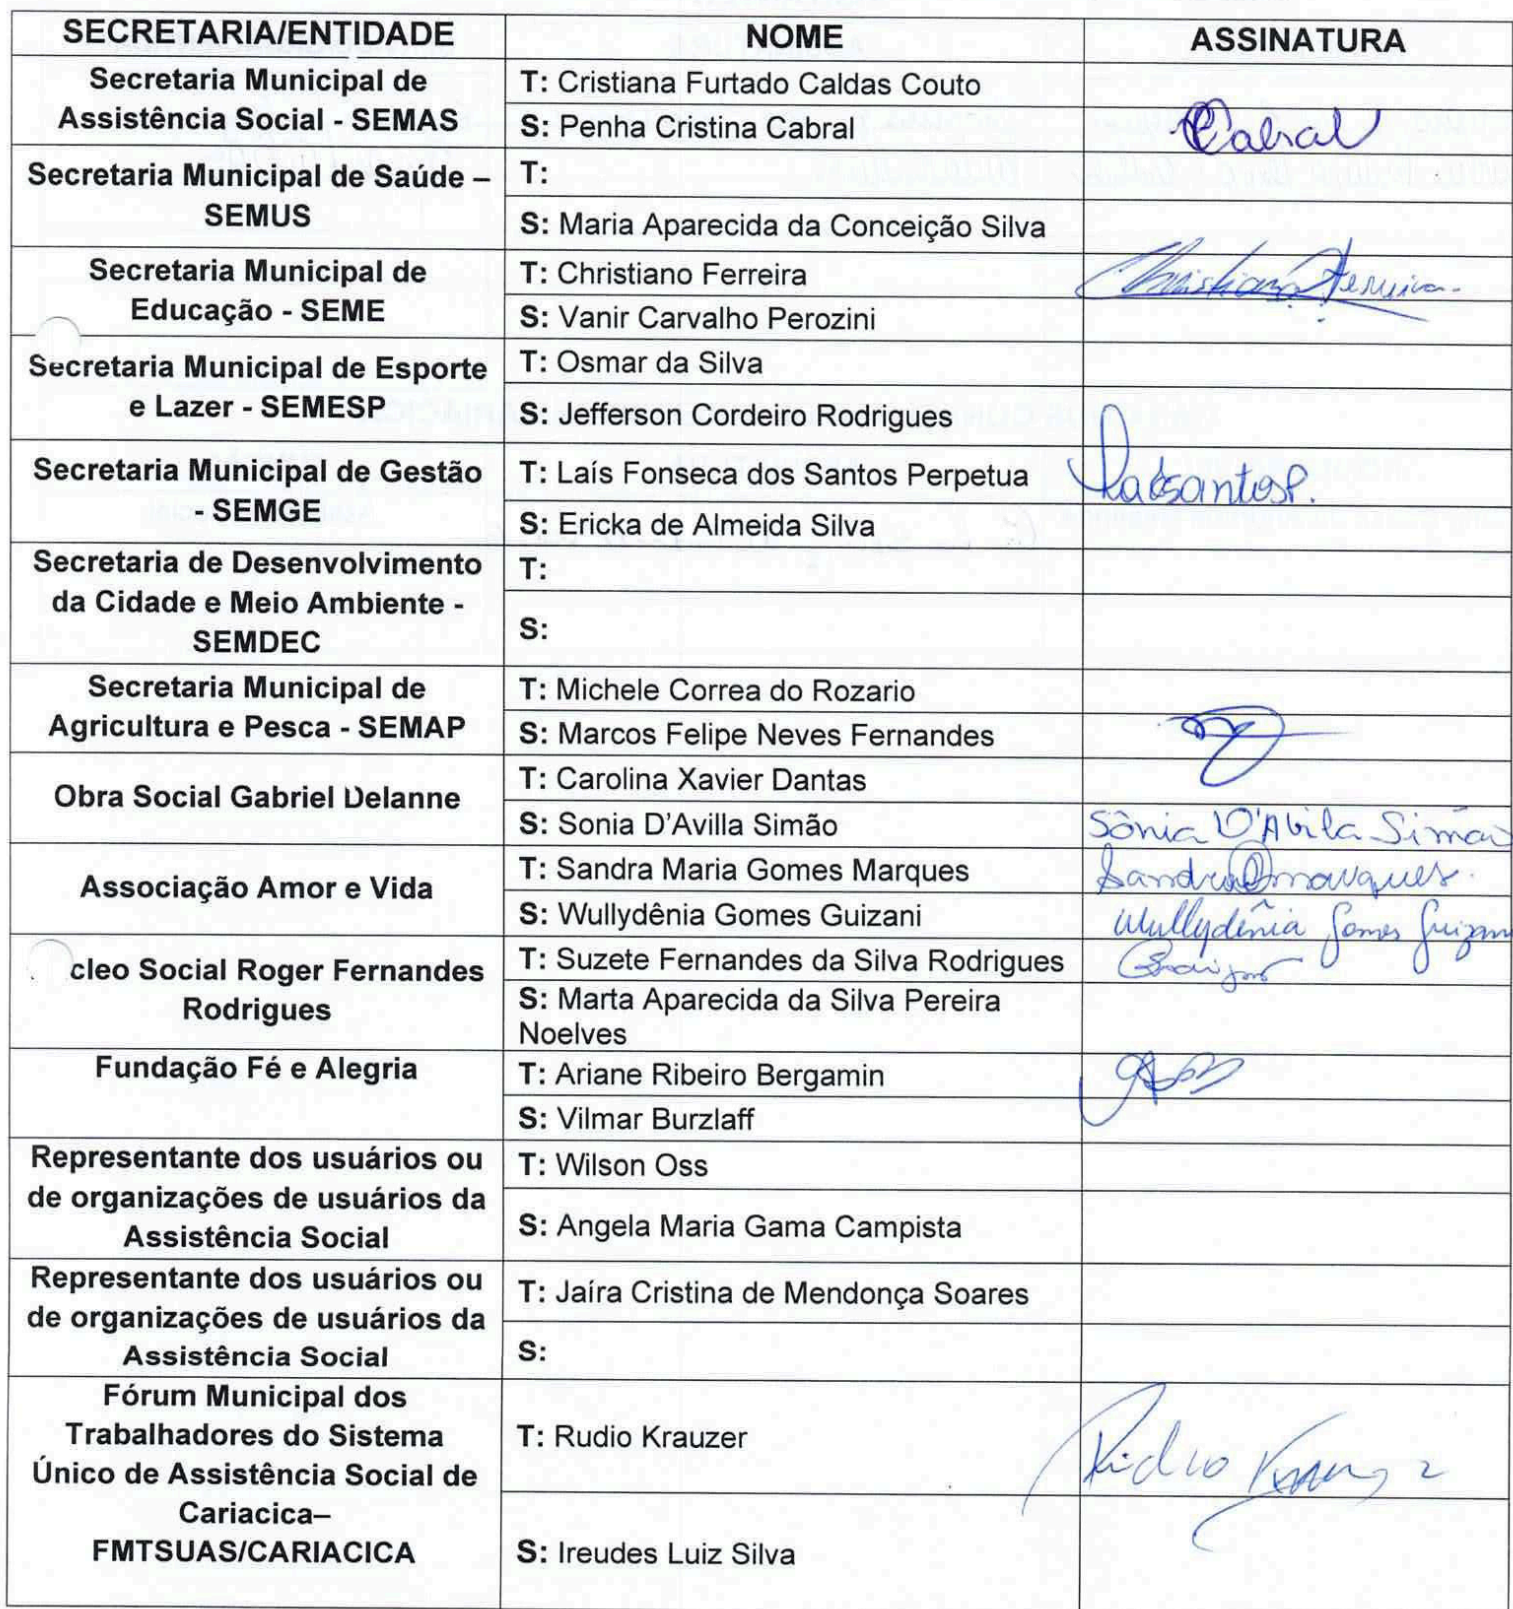 SECRETARIA/ENTIDADE NOME ASSINATURA
Secretaria Municipal de
Assistência Social - SEMAS
T: Cristiana Furtado Caldas Couto
S: Penha Cristina Cabral
Cabral
Secretaria Municipal de Saúde –
SEMUS
T:
S: Maria Aparecida da Conceição Silva
Secretaria Municipal de
Educação - SEME
T: Christiano Ferreira
Christiano Ferreira
S: Vanir Carvalho Perozini
Secretaria Municipal de Esporte
e Lazer - SEMESP
T: Osmar da Silva
S: Jefferson Cordeiro Rodrigues
Secretaria Municipal de Gestão
- SEMGE
T: Laís Fonseca dos Santos Perpetua
S: Ericka de Almeida Silva
Secretaria de Desenvolvimento
da Cidade e Meio Ambiente -
SEMDEC
T:
S:
Secretaria Municipal de
Agricultura e Pesca - SEMAP
T: Michele Correa do Rozario
S: Marcos Felipe Neves Fernandes
Obra Social Gabriel Delanne
T: Carolina Xavier Dantas
S: Sonia D'Avilla Simão
Sônia D'Avila Simão
Associação Amor e Vida
T: Sandra Maria Gomes Marques
Sandra Marques.
S: Wullydênia Gomes Guizani
Wullydênia Gomes Guizani
cleo Social Roger Fernandes
Rodrigues
T: Suzete Fernandes da Silva Rodrigues
S: Marta Aparecida da Silva Pereira
Noelves
Fundação Fé e Alegria
T: Ariane Ribeiro Bergamin
S: Vilmar Burzlaff
Representante dos usuários ou
de organizações de usuários da
Assistência Social
T: Wilson Oss
S: Angela Maria Gama Campista
Representante dos usuários ou
de organizações de usuários da
Assistência Social
T: Jaíra Cristina de Mendonça Soares
S:
Fórum Municipal dos
Trabalhadores do Sistema
Único de Assistência Social de
Cariacica–
FMTSUAS/CARIACICA
T: Rudio Krauzer
Rudio
S: Ireudes Luiz Silva